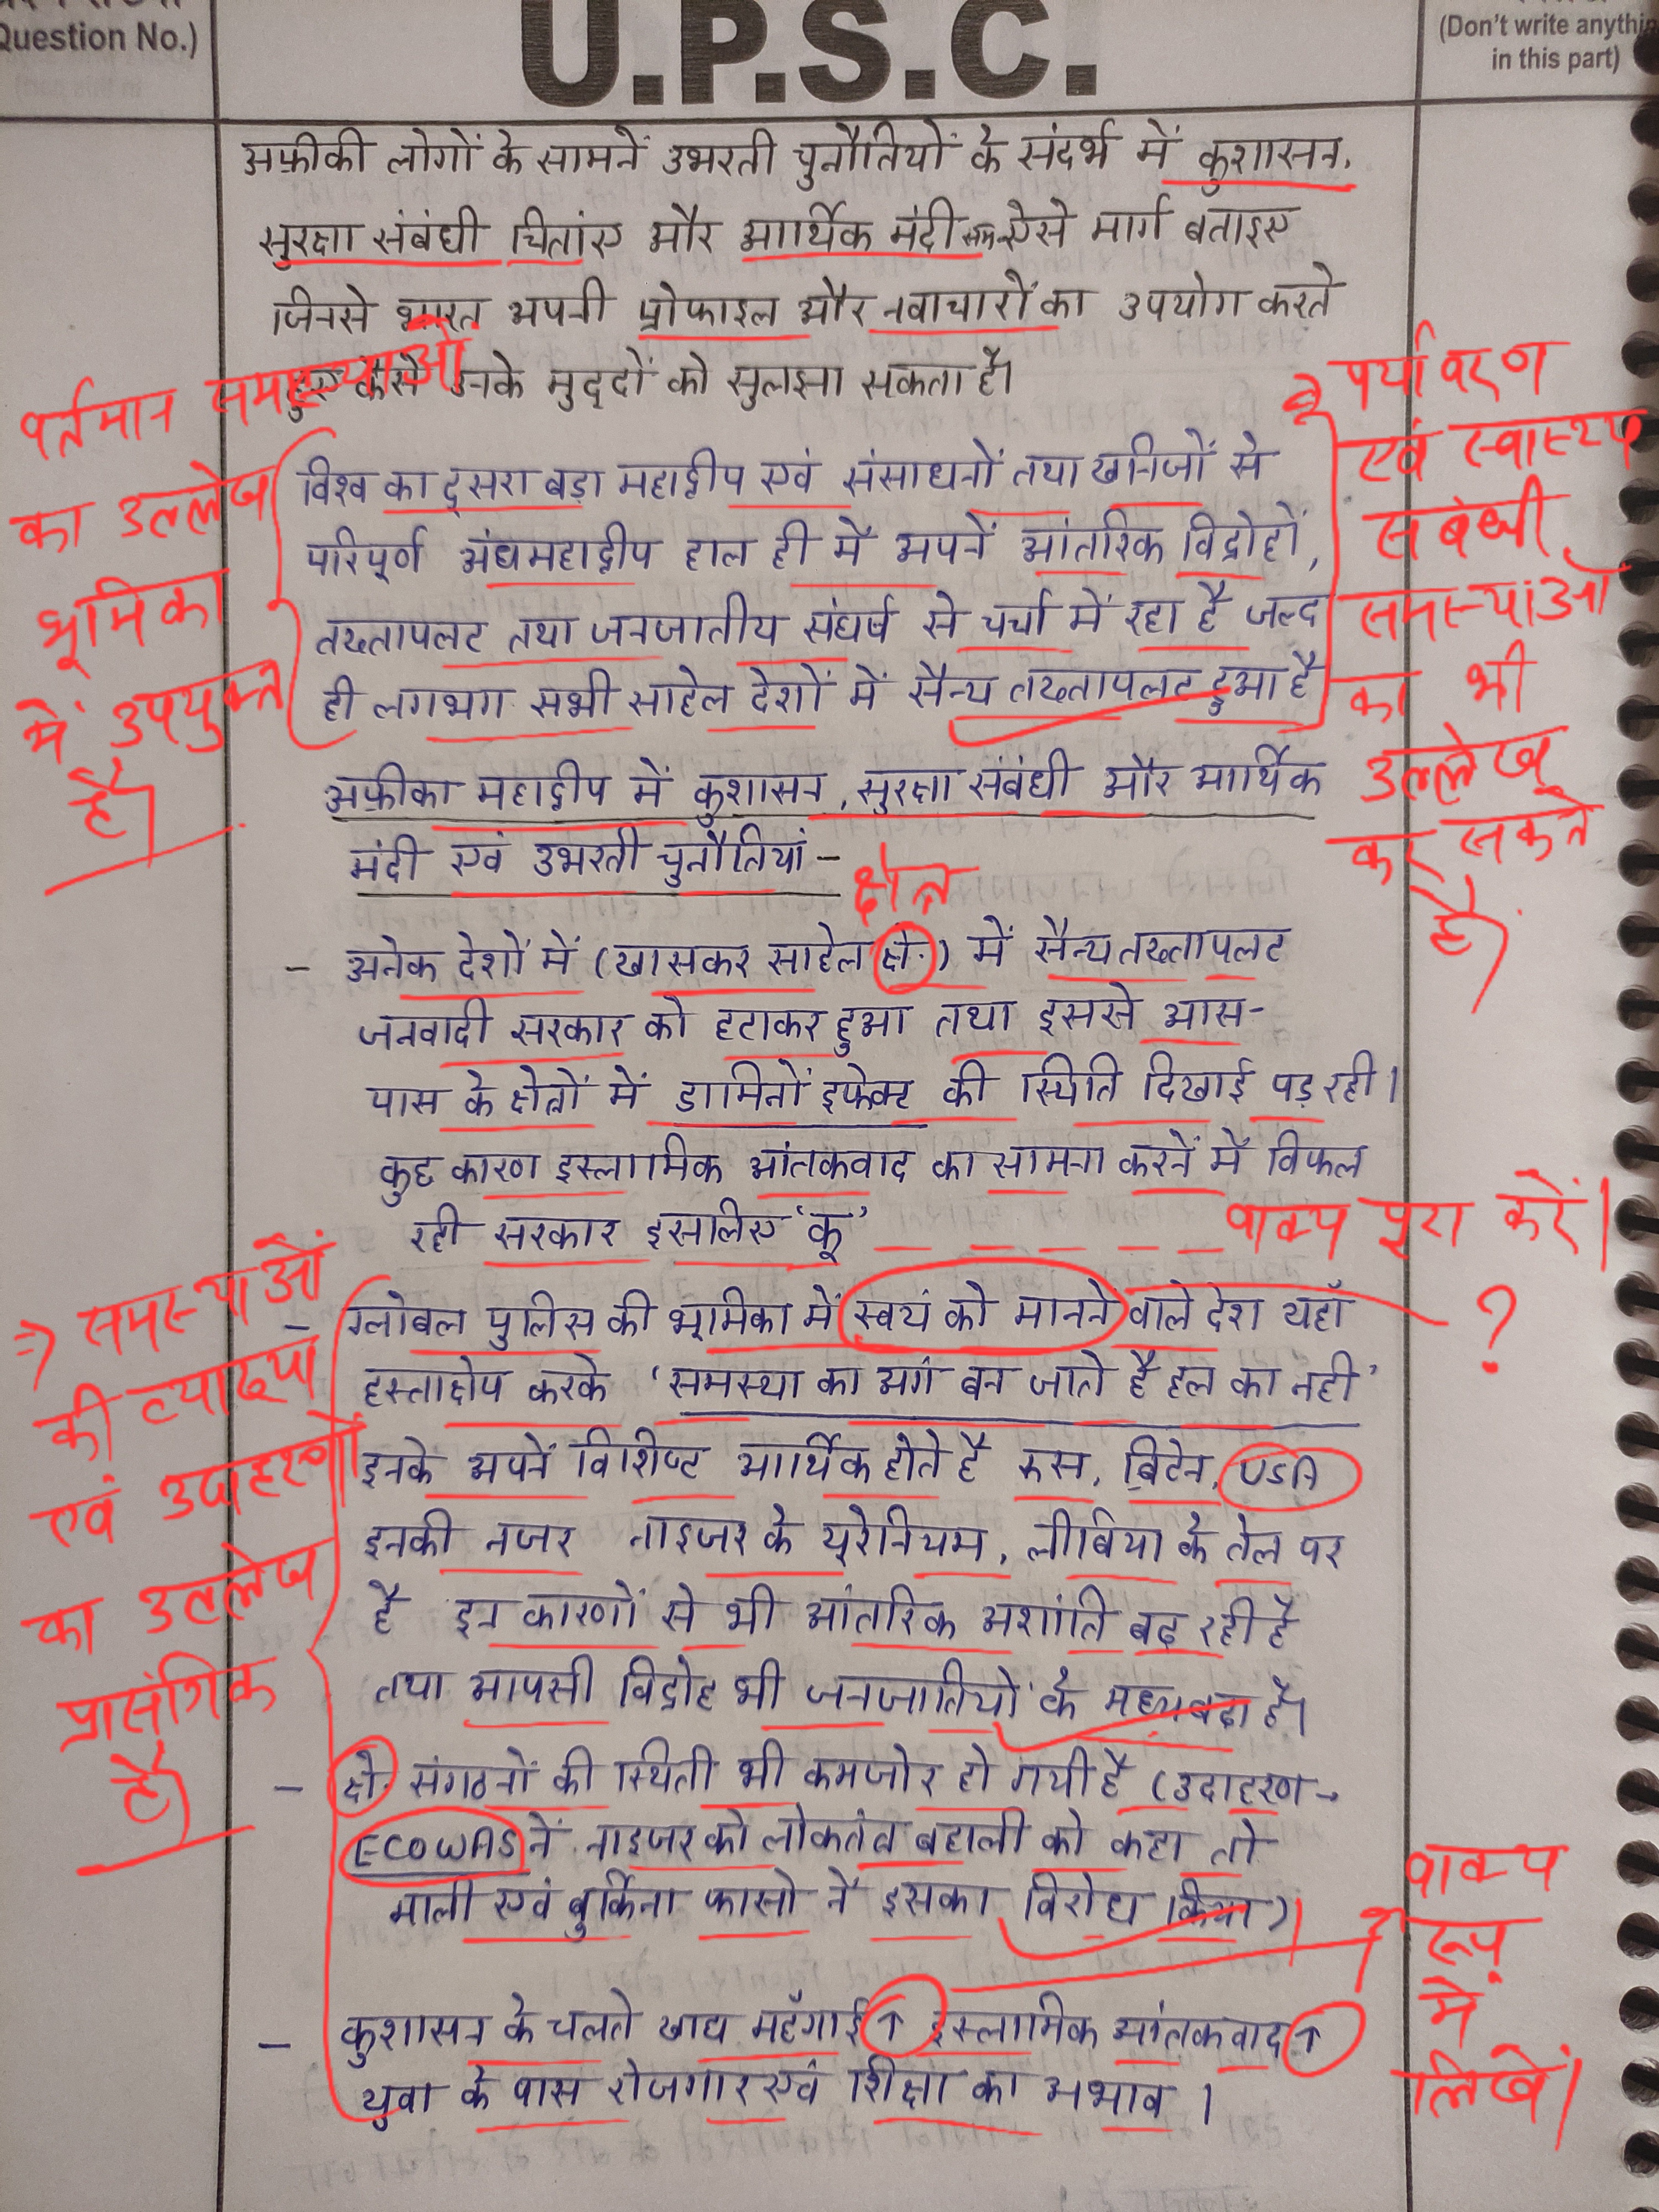 Question No.)
U.P.S.C.
(Don't write anythi
in this part)
अफ्रीकी लोगों के सामनें उभरती चुनौतियों के संदर्भ में कुशासन,
सुरक्षा संबंधी चितांए और आर्थिक मंदी ऐसे मार्ग बताइए
जिनसे भारत अपनी प्रोफाइल और नवाचारों का उपयोग करते
हुए कैसे उनके मुद्दों को सुलझा सकता है।
वर्तमान समस्याओं
का उल्लेख
भूमिका
में उपयुक्त
है।
विश्व का दूसरा बड़ा महाद्वीप एवं संसाधनों तथा खनिजों से
परिपूर्ण अंधमहाद्वीप हाल ही में अपनें आंतरिक विद्रोहों,
तख्तापलट तथा जनजातीय संघर्ष से चर्चा में रहा है जल्द
ही लगभग सभी साहेल देशों में सैन्य तख्तापलट हुआ है
पर्यावरण
एवं स्वास्थ्य
संबंधी
समस्याओं
का भी
उल्लेख
कर सकते
है।
अफ्रीका महाद्वीप में कुशासन, सुरक्षा संबंधी और आर्थिक
मंदी एवं उभरती चुनौतियां -
क्षेत्र
- अनेक देशों में (खासकर साहेल क्षे.) में सैन्य तख्तापलट
जनवादी सरकार को हटाकर हुआ तथा इससे आस-
पास के क्षेत्रों में डामिनों इफेक्ट की स्थिति दिखाई पड़ रही।
कुछ कारण इस्लामिक आंतकवाद का सामना करनें में विफल
रही सरकार इसलिए 'कू'
वाक्य पूरा करें।
?
- ग्लोबल पुलिस की भूमिका में स्वयं को मानने वाले देश यहाँ
हस्ताक्षेप करके 'समस्या का अंग बन जाते है हल का नही'
इनके अपनें विशिष्ट आर्थिक होते है रूस, ब्रिटेन, USA
इनकी नजर नाइजर के यूरेनियम, लीबिया के तेल पर
है इन कारणों से भी आंतरिक अशांति बढ़ रही है
तथा आपसी विद्रोह भी जनजातियों के मध्य बढ़ा है।
⇒ समस्याओं
की व्याख्या
एवं उदाहरणों
का उल्लेख
प्रासंगिक
है।
- क्षे. संगठनों की स्थिती भी कमजोर हो गयी है (उदाहरण→
ECOWAS नें नाइजर को लोकतंत्र बहाली को कहा तो
माली एवं बुर्किना फासो नें इसका विरोध किया)।
वाक्य
रूप
में
लिखें।
- कुशासन के चलते खाद्य महँगाई ↑ इस्लामिक आंतकवाद ↑
युवा के पास रोजगार एवं शिक्षा का अभाव।